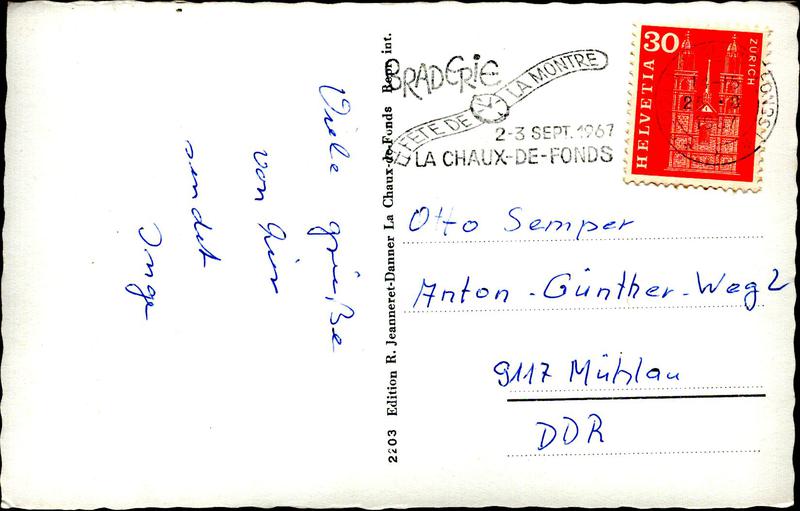 Viele grüße
von hier
sendet
Inge
2203 Edition R. Jeanneret-Danner La Chaux-de-Fonds Repr. int.
BRADERIE
FÊTE DE LA MONTRE
2-3 SEPT. 1967
LA CHAUX-DE-FONDS
30
HELVETIA
ZÜRICH
Otto Semper
Anton-Günther-Weg 2
9117 Mühlau
DDR